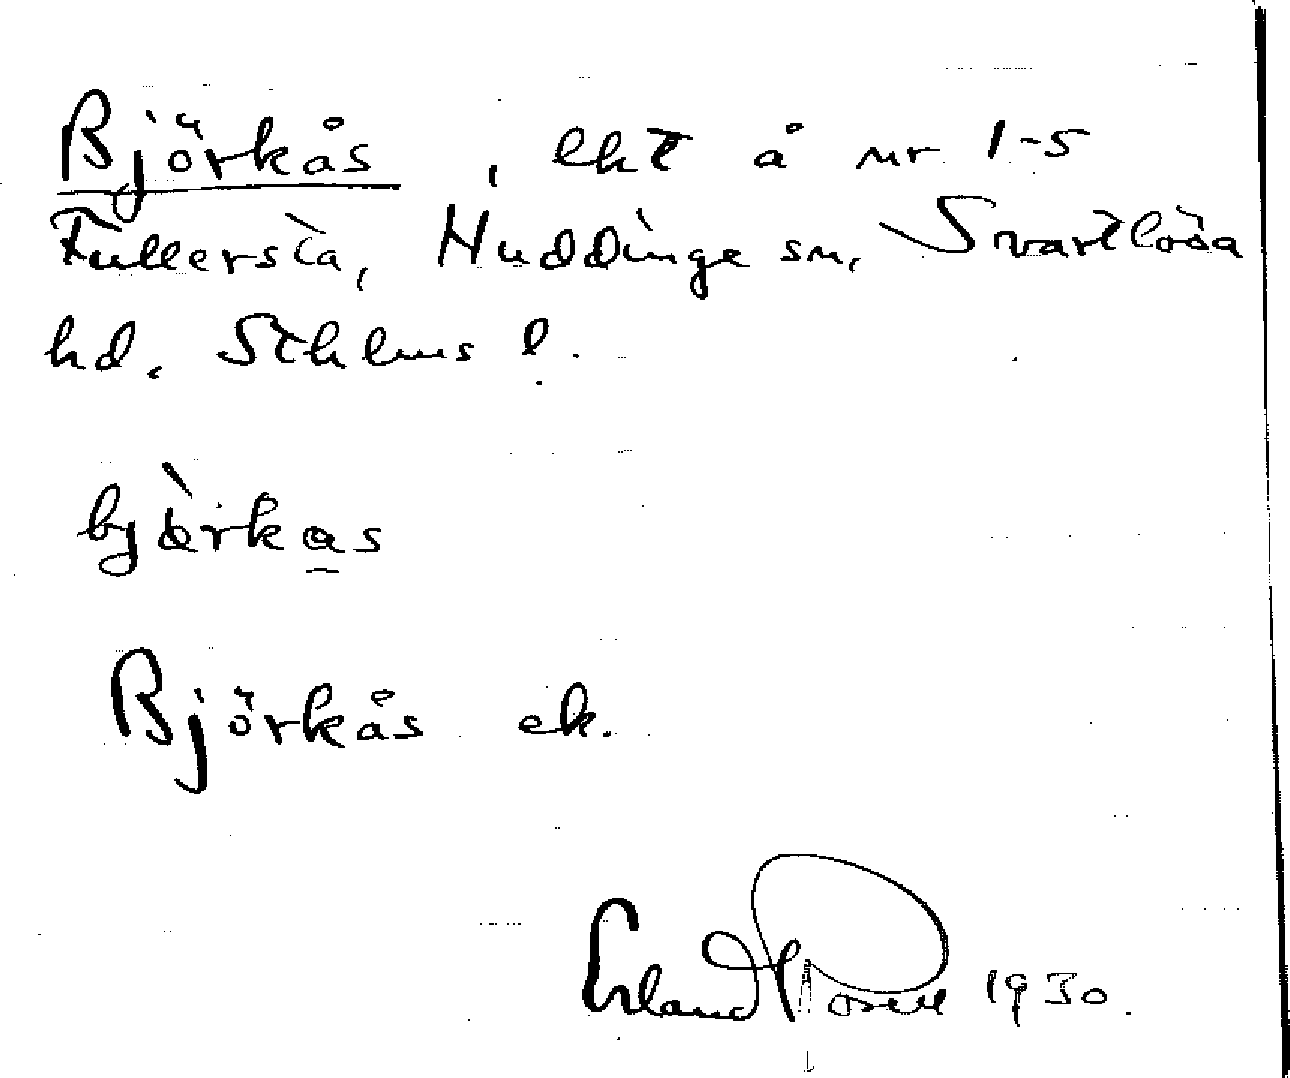 Björkås, lht å nr 1-5
Fullersta, Huddinge sn, Svartlösa
hd. Sthlms l.
björkas
Björkås ek.
Erland Rosell 1930.